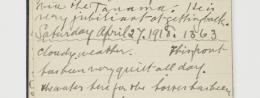 via the Panama. He is
very jubilant at getting back.
Saturday April 27. 1918. 1863
cloudy weather. This front
has been very quiet all day.
the water here for the horses has been